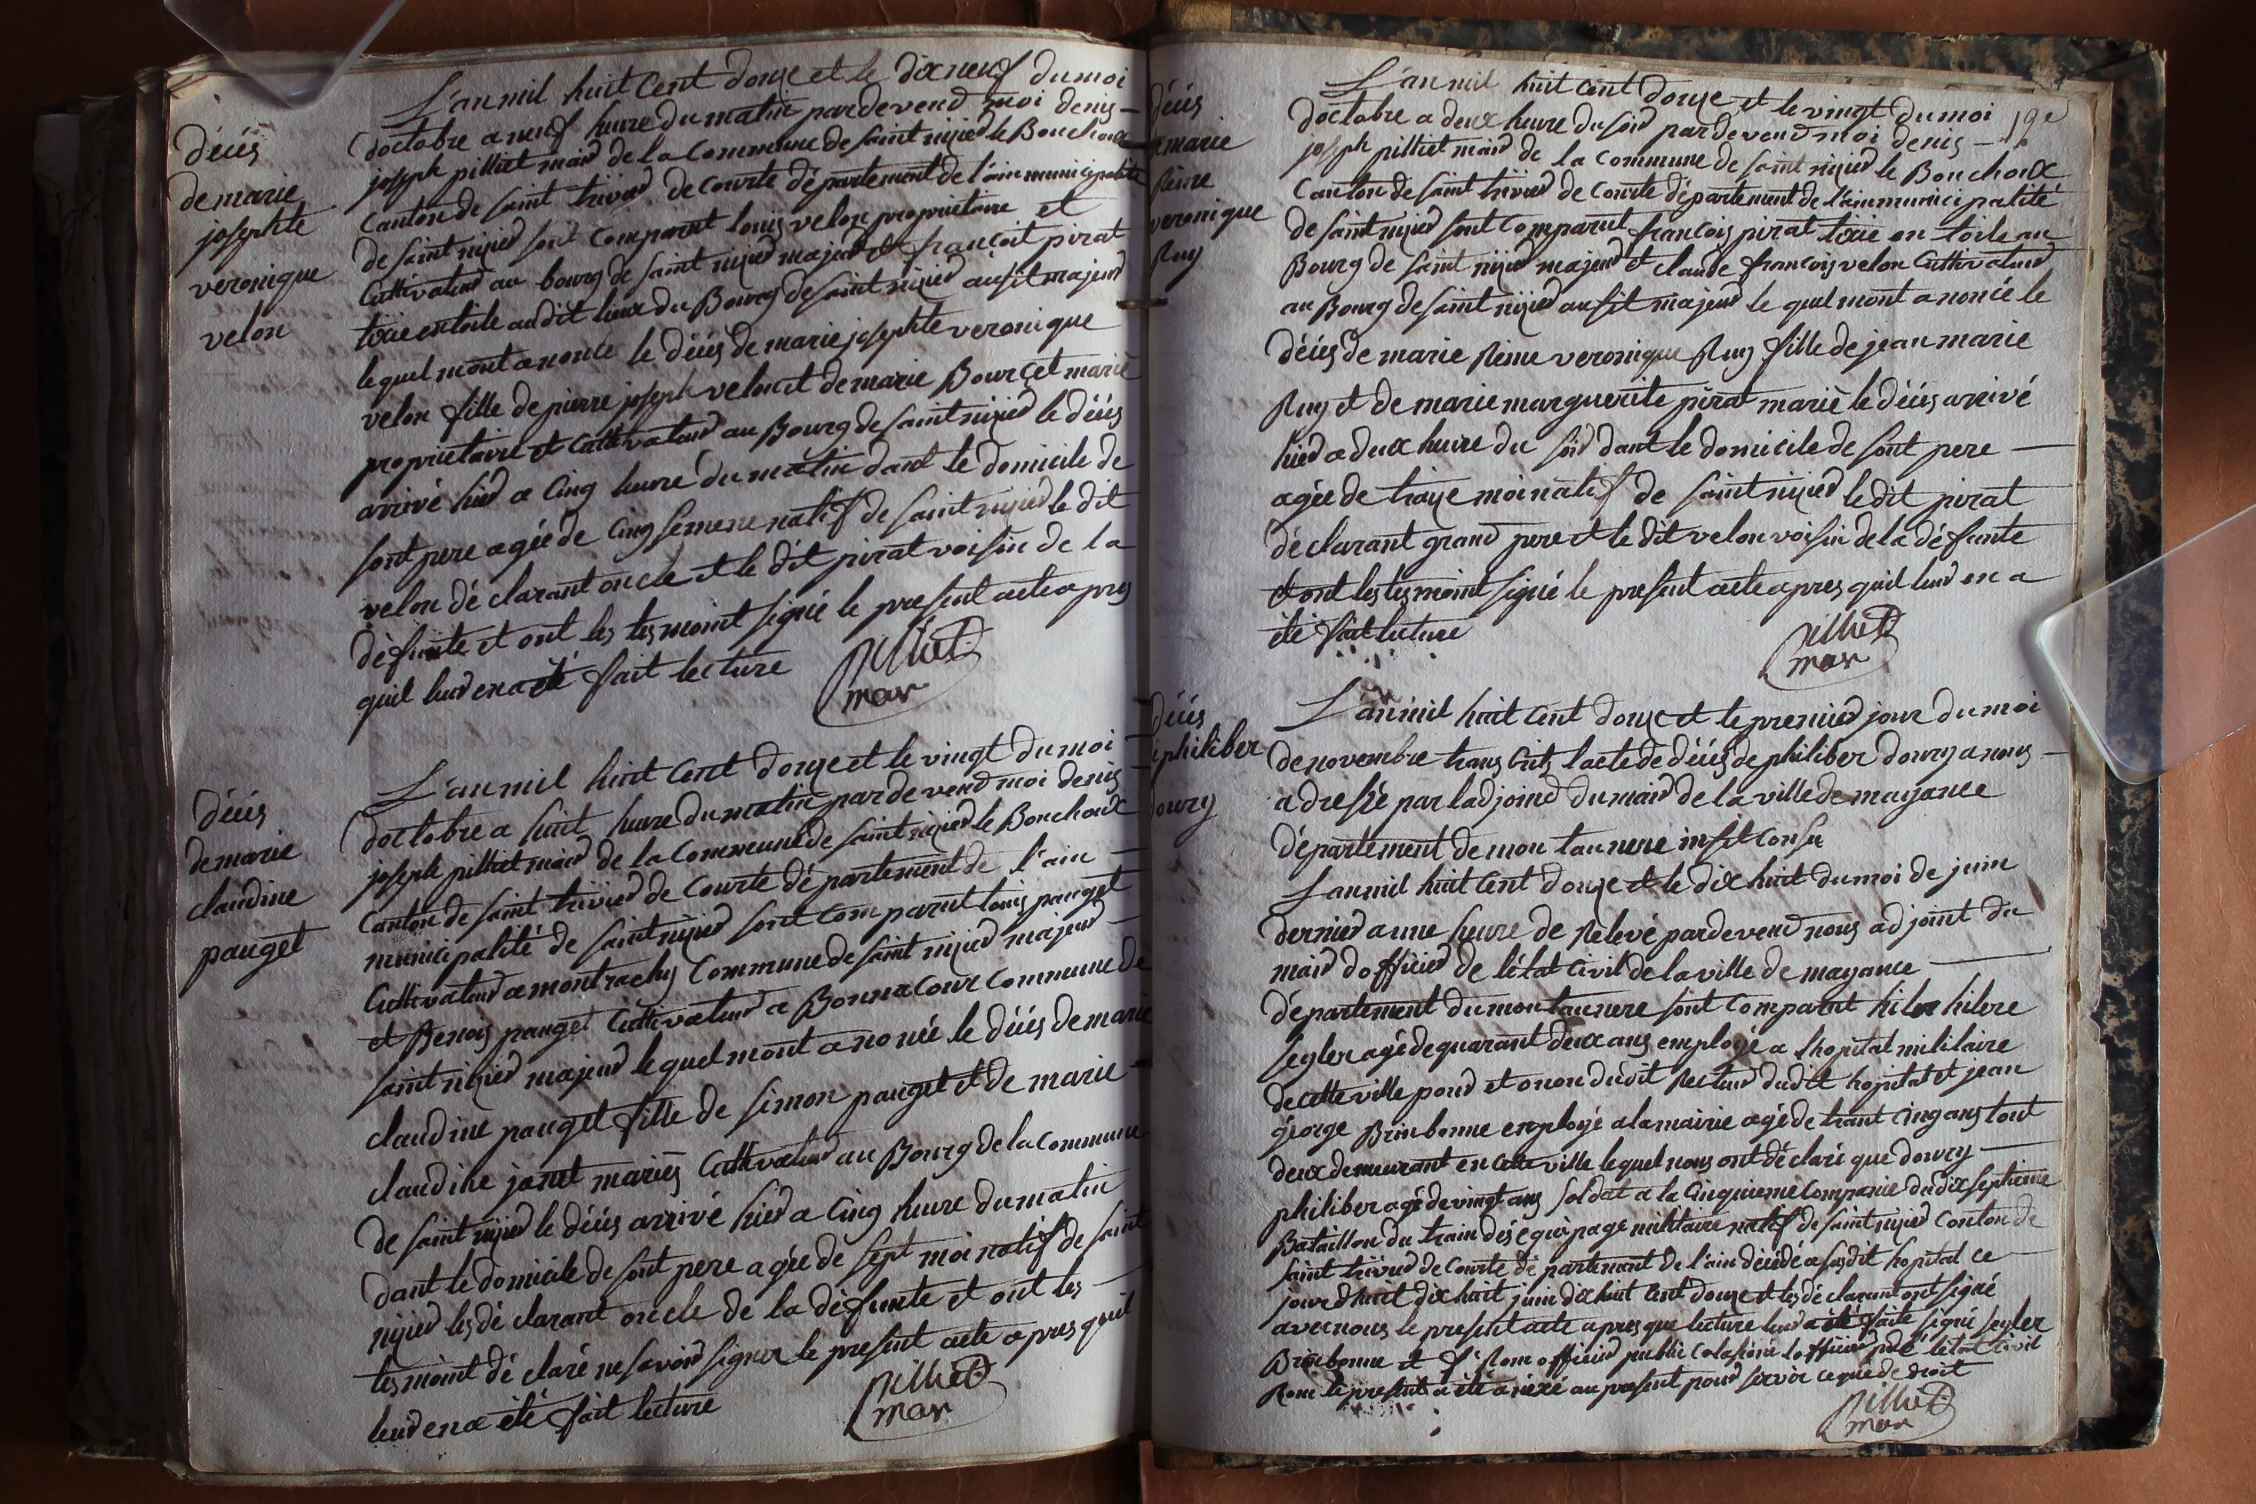 décés
de marie
josephte
veronique
velon
L'an mil huit Cent douze et le dix neuf du moi
doctobre a neuf heure du matin pardevend moi denis
joseph pilliet maird de la Commune de saint nizied le Bouchoux
Canton de saint trivied de Courte département de l'ain municipalité
de saint nizied sont Comparut louis velon proprietaire et
Cultivateud au bourg de saint nizied majeud et francoit pirat
tixie en toile au dit lieux du Bourg de saint nizied ausit majeud
lequel mont anoncé le décés de marie josephte veronique
velon fille de pierre joseph velon et de marie Bourcet marié
proprietaire et Cultivateud au Bourg de saint nizied le décés
arrivé hied a Cinq heure du matin dant le domicile de
sont pere agée de Cinq semene natif de saint nizied le dit
velon déclarant oncle et le dit pirat voisin de la
défunte et ont les tesmoint signé le present acte apres
quil leud en a été fait lecture
Pilliet
mar
décés
de marie
claudine
pauget
L'an mil huit Cent douze et le vingt du moi
doctobre a huit heure du matin pardevend moi denis
joseph pilliet maird de la Commune de saint nizied le Bouchoux
Canton de saint trivied de Courte département de l'ain
municipalité de saint nizied sont Comparut louis pauget
Cultivateud a montrachy Commune de saint nizied majeud
et Benois pauget Cultivateud a Bonnacour Commune de
saint nizied majeud lequel mont anoncé le décés de marie
claudine pauget fille de simon pauget et de marie
claudine janet mariés Cultivateud au Bourg de la Commune
de saint nizied le décés arrivé hied a Cinq heure du matin
dant le domicile de sont pere agée de sept moi natif de saint
nizied les déclarant oncle de la défunte et ont les
tesmoint déclaré ne savoid signer le present acte apres quil
leud en a été fait lecture
Pilliet
mar
19e
décés
marie
Reine
veronique
Ruy
L'an mil huit Cent douze et le vingt du moi
doctobre a deux heure du soid pardevend moi denis
joseph pilliet maird de la Commune de saint nizied le Bouchoux
Canton de saint trivied de Courte département de l'ain municipalité
de saint nizied sont Comparut francois pirat tixie en toile au
Bourg de saint nizied majeud et claude francois velon Cultivateud
au Bourg de saint nizied ausit majeud le quel mont anoncée le
décés de marie Reine veronique Ruy fille de jean marie
Ruy et de marie marguerite pirat mariè le décés arrivé
hied a deux heure du soid dant le domicile de sont pere
agée de traize moi natif de saint nizied le dit pirat
déclarant grand pere et le dit velon voisin de la défunte
et ont les tesmoint signé le present acte apres quil leud en a
été fait lecture
Pilliet
mar
décés
philiber
doury
L'an mil huit Cent douze et le premied jour du moi
de novembre transcrit lacte de décés de philiber doury a nous
adressé par ladjoind du maird de la ville de mayance
département de mon taunere insit Consu
L'an mil huit Cent douze et le dix huit du moi de juin
dernied a une heure de Relevé pardevend nous adjoint du
maird d officied de létat Civil de la ville de mayance
département du mon taunere sont Comparut hilbre
segler agé de quarant deux ans employé a lhopital militaire
de cette ville poud et o non du dit Recteud dudit hopital et jean
george Brinbonne employé a la mairie agé de trant Cinq ans tout
deux demeurant en cette ville lequel nous ont déclaré que dourry
philiber agé de vingt ans soldat a la Cinquieme Companie du dix septieme
Bataillon du train des équipage militaire natif de saint nizied Conton de
saint trivied de Courte département de l'ain décédé a susdit hopital ce
jourd'huit dix huit juin dix huit Cent douze et les déclarant ont signé
avec nous le present acte apres que lecture leud a été faite signé segler
Brinbonne et f. Rom officied public Colasioné lofficied de létat Civil
Rom le present a été anexé au present poud servir ce que de droit
Pilliet
mar